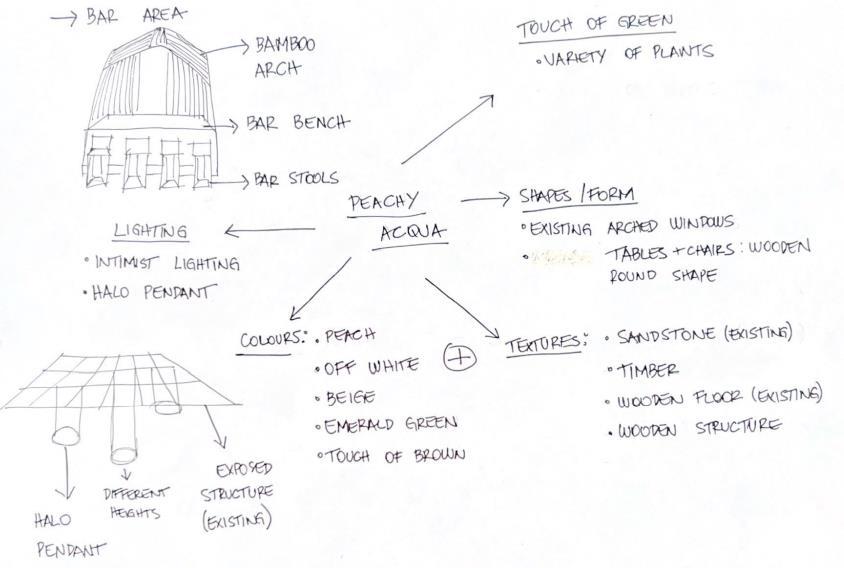 → BAR AREA
BAMBOO
ARCH
BAR BENCH
BAR STOOLS
TOUCH OF GREEN
• VARIETY OF PLANTS
PEACHY
ACQUA
SHAPES/FORM
• EXISTING ARCHED WINDOWS
• TABLES + CHAIRS: WOODEN
ROUND SHAPE
LIGHTING
• INTIMIST LIGHTING
• HALO PENDANT
COLOURS: • PEACH
• OFF WHITE
• BEIGE
• EMERALD GREEN
• TOUCH OF BROWN
+
TEXTURES: • SANDSTONE (EXISTING)
• TIMBER
• WOODEN FLOOR (EXISTING)
• WOODEN STRUCTURE
HALO
PENDANT
DIFFERENT
HEIGHTS
EXPOSED
STRUCTURE
(EXISTING)